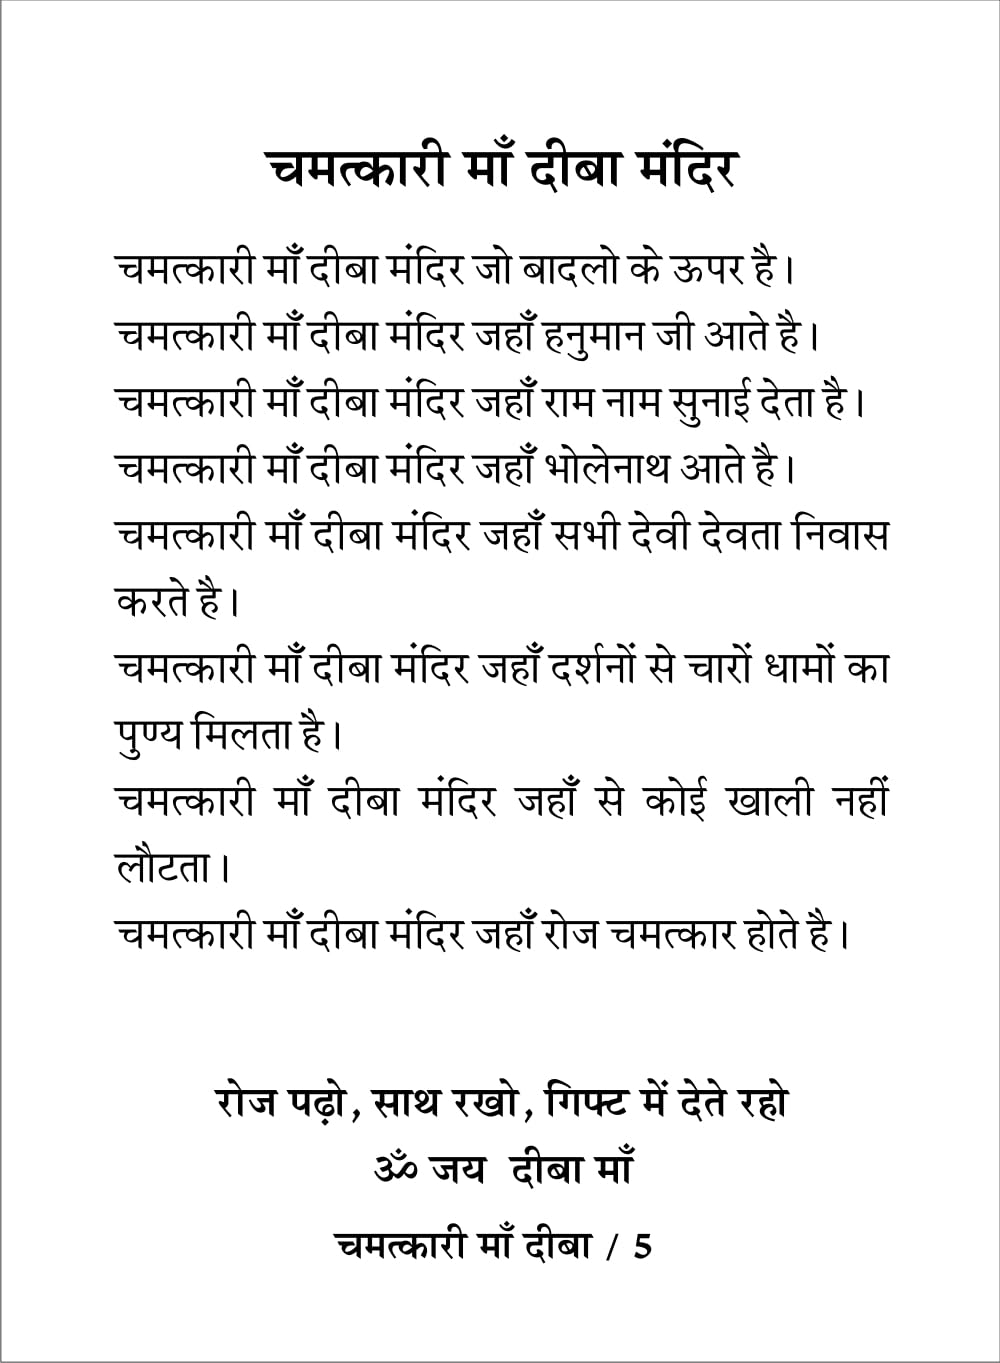 चमत्कारी माँ दीबा मंदिर
चमत्कारी माँ दीबा मंदिर जो बादलो के ऊपर है।
चमत्कारी माँ दीबा मंदिर जहाँ हनुमान जी आते है।
चमत्कारी माँ दीबा मंदिर जहाँ राम नाम सुनाई देता है।
चमत्कारी माँ दीबा मंदिर जहाँ भोलेनाथ आते है।
चमत्कारी माँ दीबा मंदिर जहाँ सभी देवी देवता निवास
करते है।
चमत्कारी माँ दीबा मंदिर जहाँ दर्शनों से चारों धामों का
पुण्य मिलता है।
चमत्कारी माँ दीबा मंदिर जहाँ से कोई खाली नहीं
लौटता।
चमत्कारी माँ दीबा मंदिर जहाँ रोज चमत्कार होते है।
रोज पढ़ो, साथ रखो, गिफ्ट में देते रहो
ॐ जय दीबा माँ
चमत्कारी माँ दीबा / 5